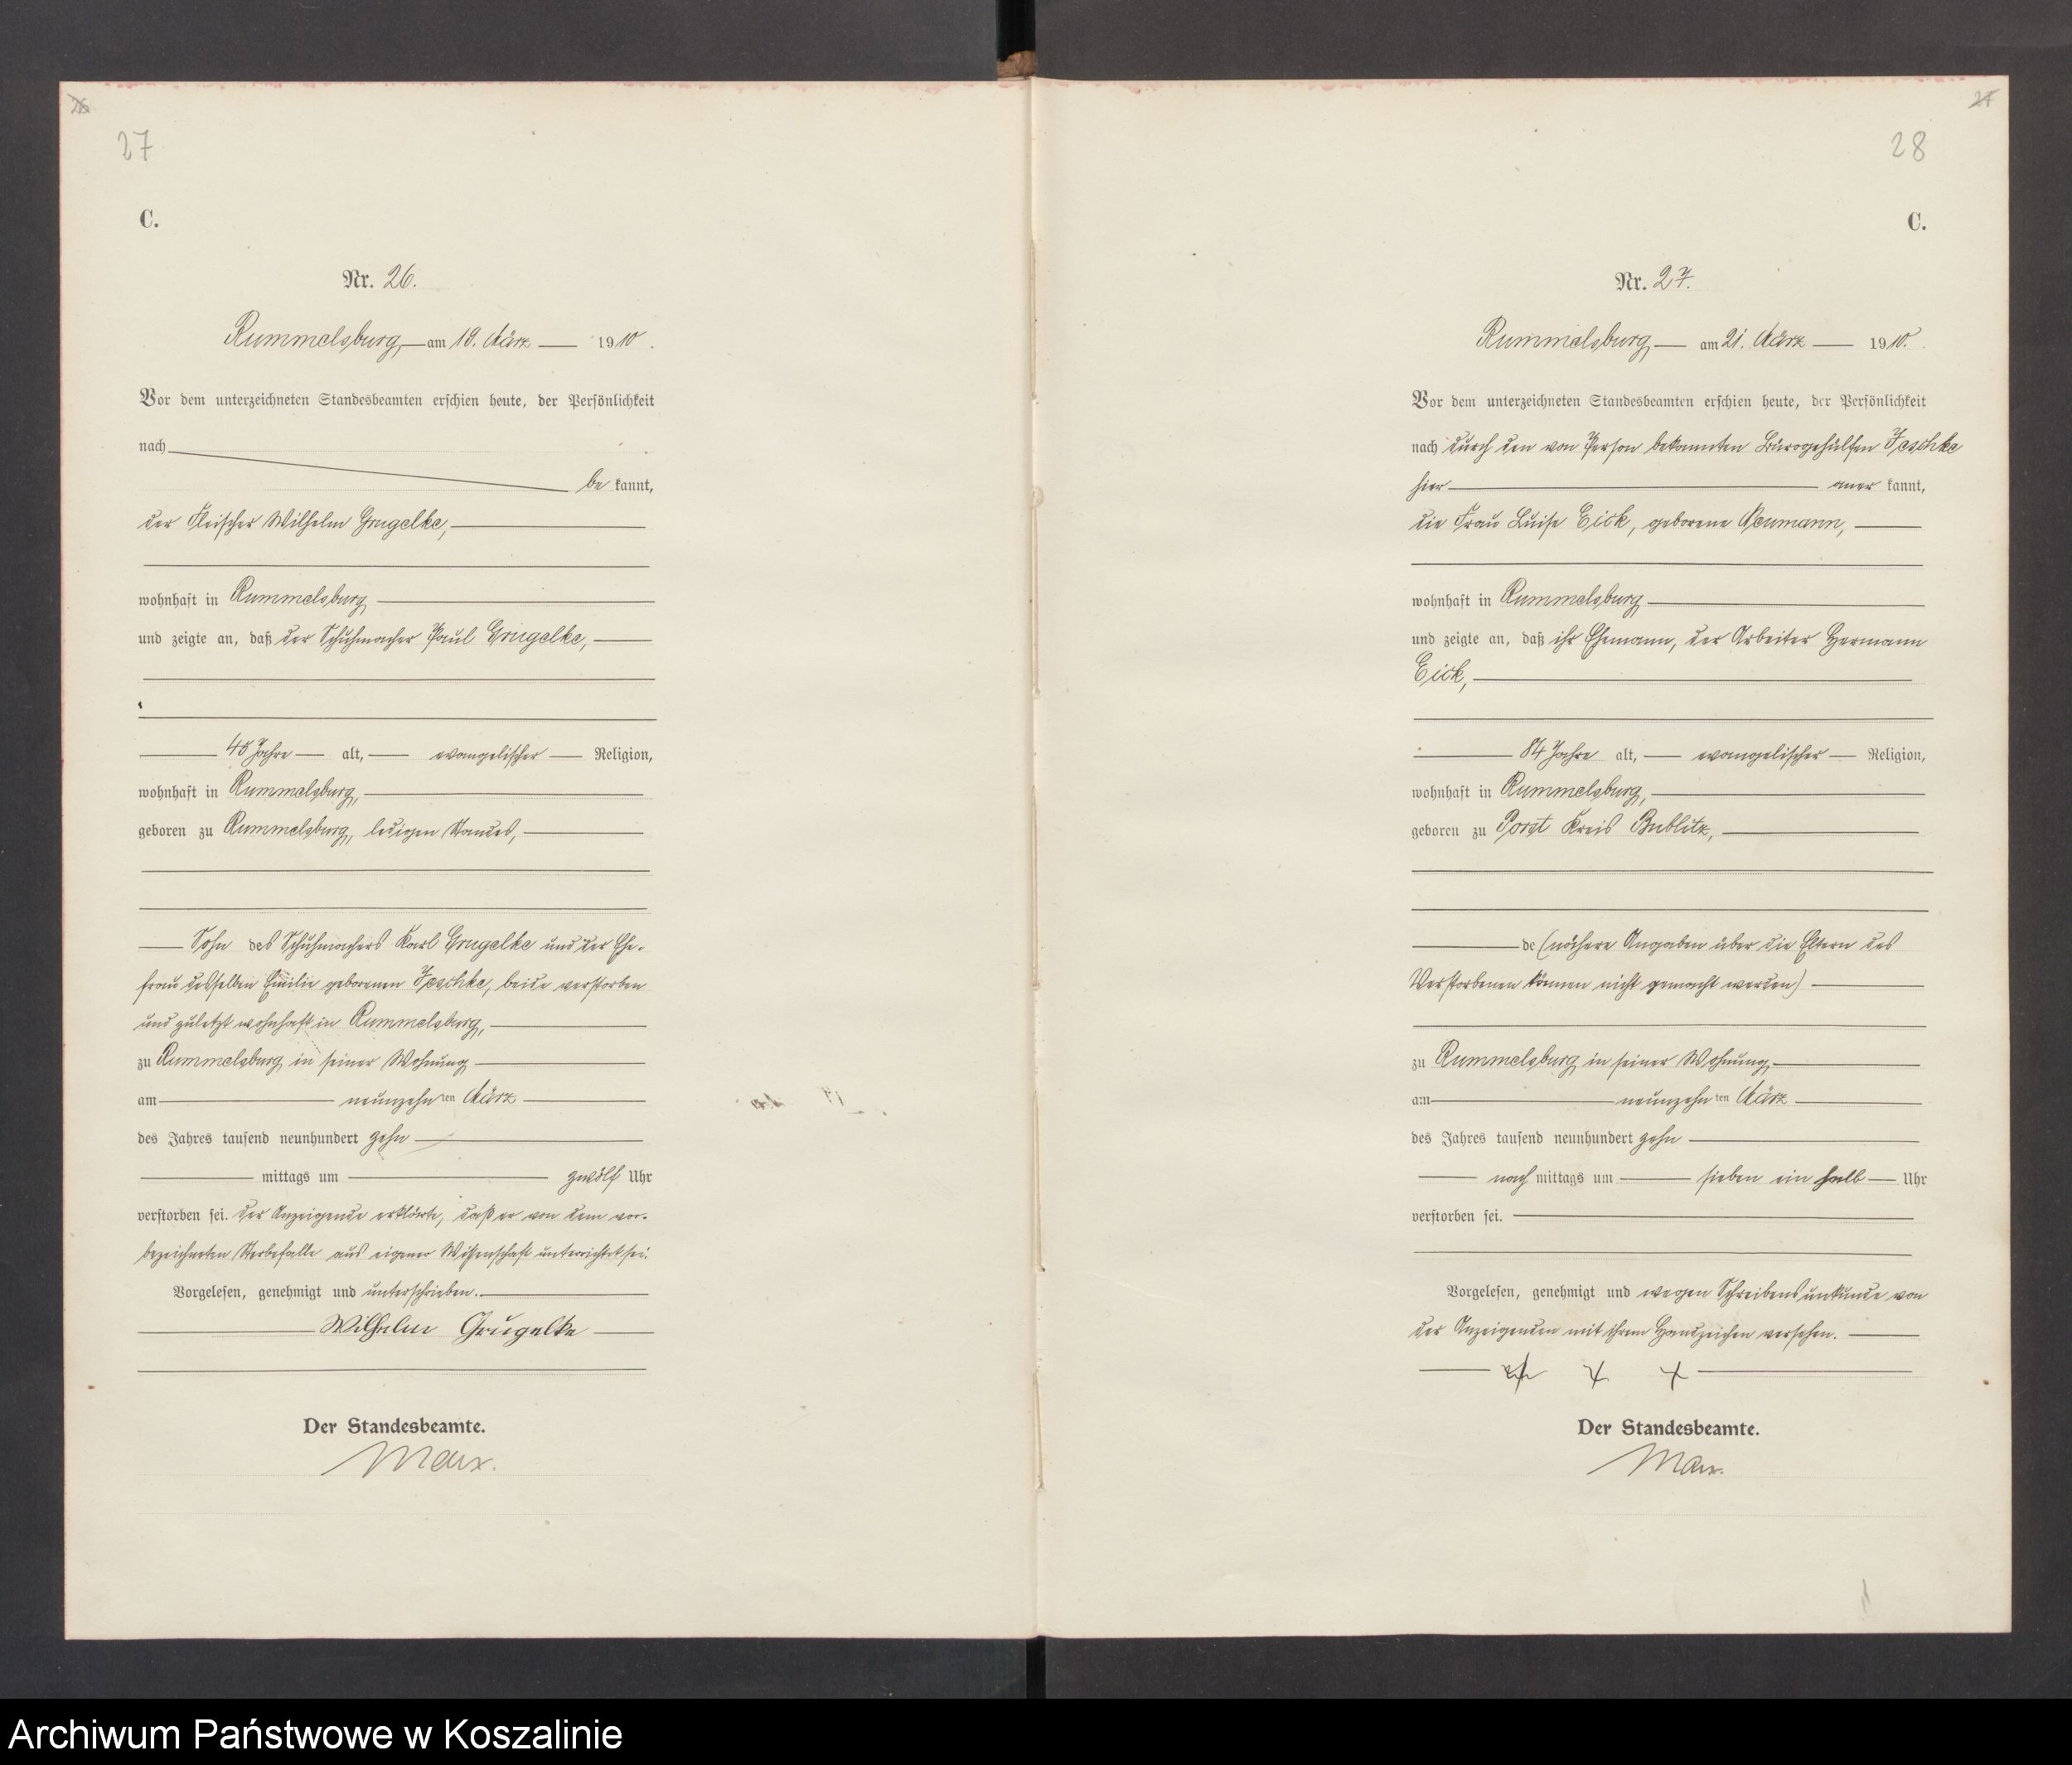 26
27
C.
Nr. 26.
Rummelsburg, am 19. März 1910.
Vor dem unterzeichneten Standesbeamten erschien heute, der Persönlichkeit
nach
be kannt,
der Fleischer Wilhelm Grugelke,
wohnhaft in Rummelsburg
und zeigte an, daß der Schuhmacher Paul Grugelke,
45 Jahre alt, evangelischer Religion,
wohnhaft in Rummelsburg,
geboren zu Rummelsburg, ledigen Standes,
Sohn des Schuhmachers Karl Grugelke und der Ehe-
frau desselben Emilie geborenen Jeschke, beide verstorben
und zuletzt wohnhaft in Rummelsburg,
zu Rummelsburg in seiner Wohnung
am neunzehn ten März
des Jahres tausend neunhundert zehn
mittags um zwölf Uhr
verstorben sei. Der Anzeigende erklärte, daß er von dem vor-
bezeichneten Sterbefalle aus eigener Wissenschaft unterrichtet sei.
Vorgelesen, genehmigt und unterschrieben.
Wilhelm Grugelke
Der Standesbeamte.
Marx.
27
28
C.
Nr. 27.
Rummelsburg, am 21. März 1910.
Vor dem unterzeichneten Standesbeamten erschien heute, der Persönlichkeit
nach durch den von Person bekannten Bürogehülfen Jeschke
hier aner kannt,
die Frau Luise Eick, geborene Neumann,
wohnhaft in Rummelsburg
und zeigte an, daß ihr Ehemann, der Arbeiter Hermann
Eick,
84 Jahre alt, evangelischer Religion,
wohnhaft in Rummelsburg,
geboren zu Porst Kreis Bublitz,
de (nähere Angaben über die Eltern des
Verstorbenen können nicht gemacht werden)
zu Rummelsburg in seiner Wohnung,
am neunzehn ten März
des Jahres tausend neunhundert zehn
nach mittags um sieben ein halb Uhr
verstorben sei.
Vorgelesen, genehmigt und wegen Schreibensunkunde von
der Anzeigenden mit ihrem Handzeichen versehen.
+ + +
Der Standesbeamte.
Marx.
Archiwum Państwowe w Koszalinie